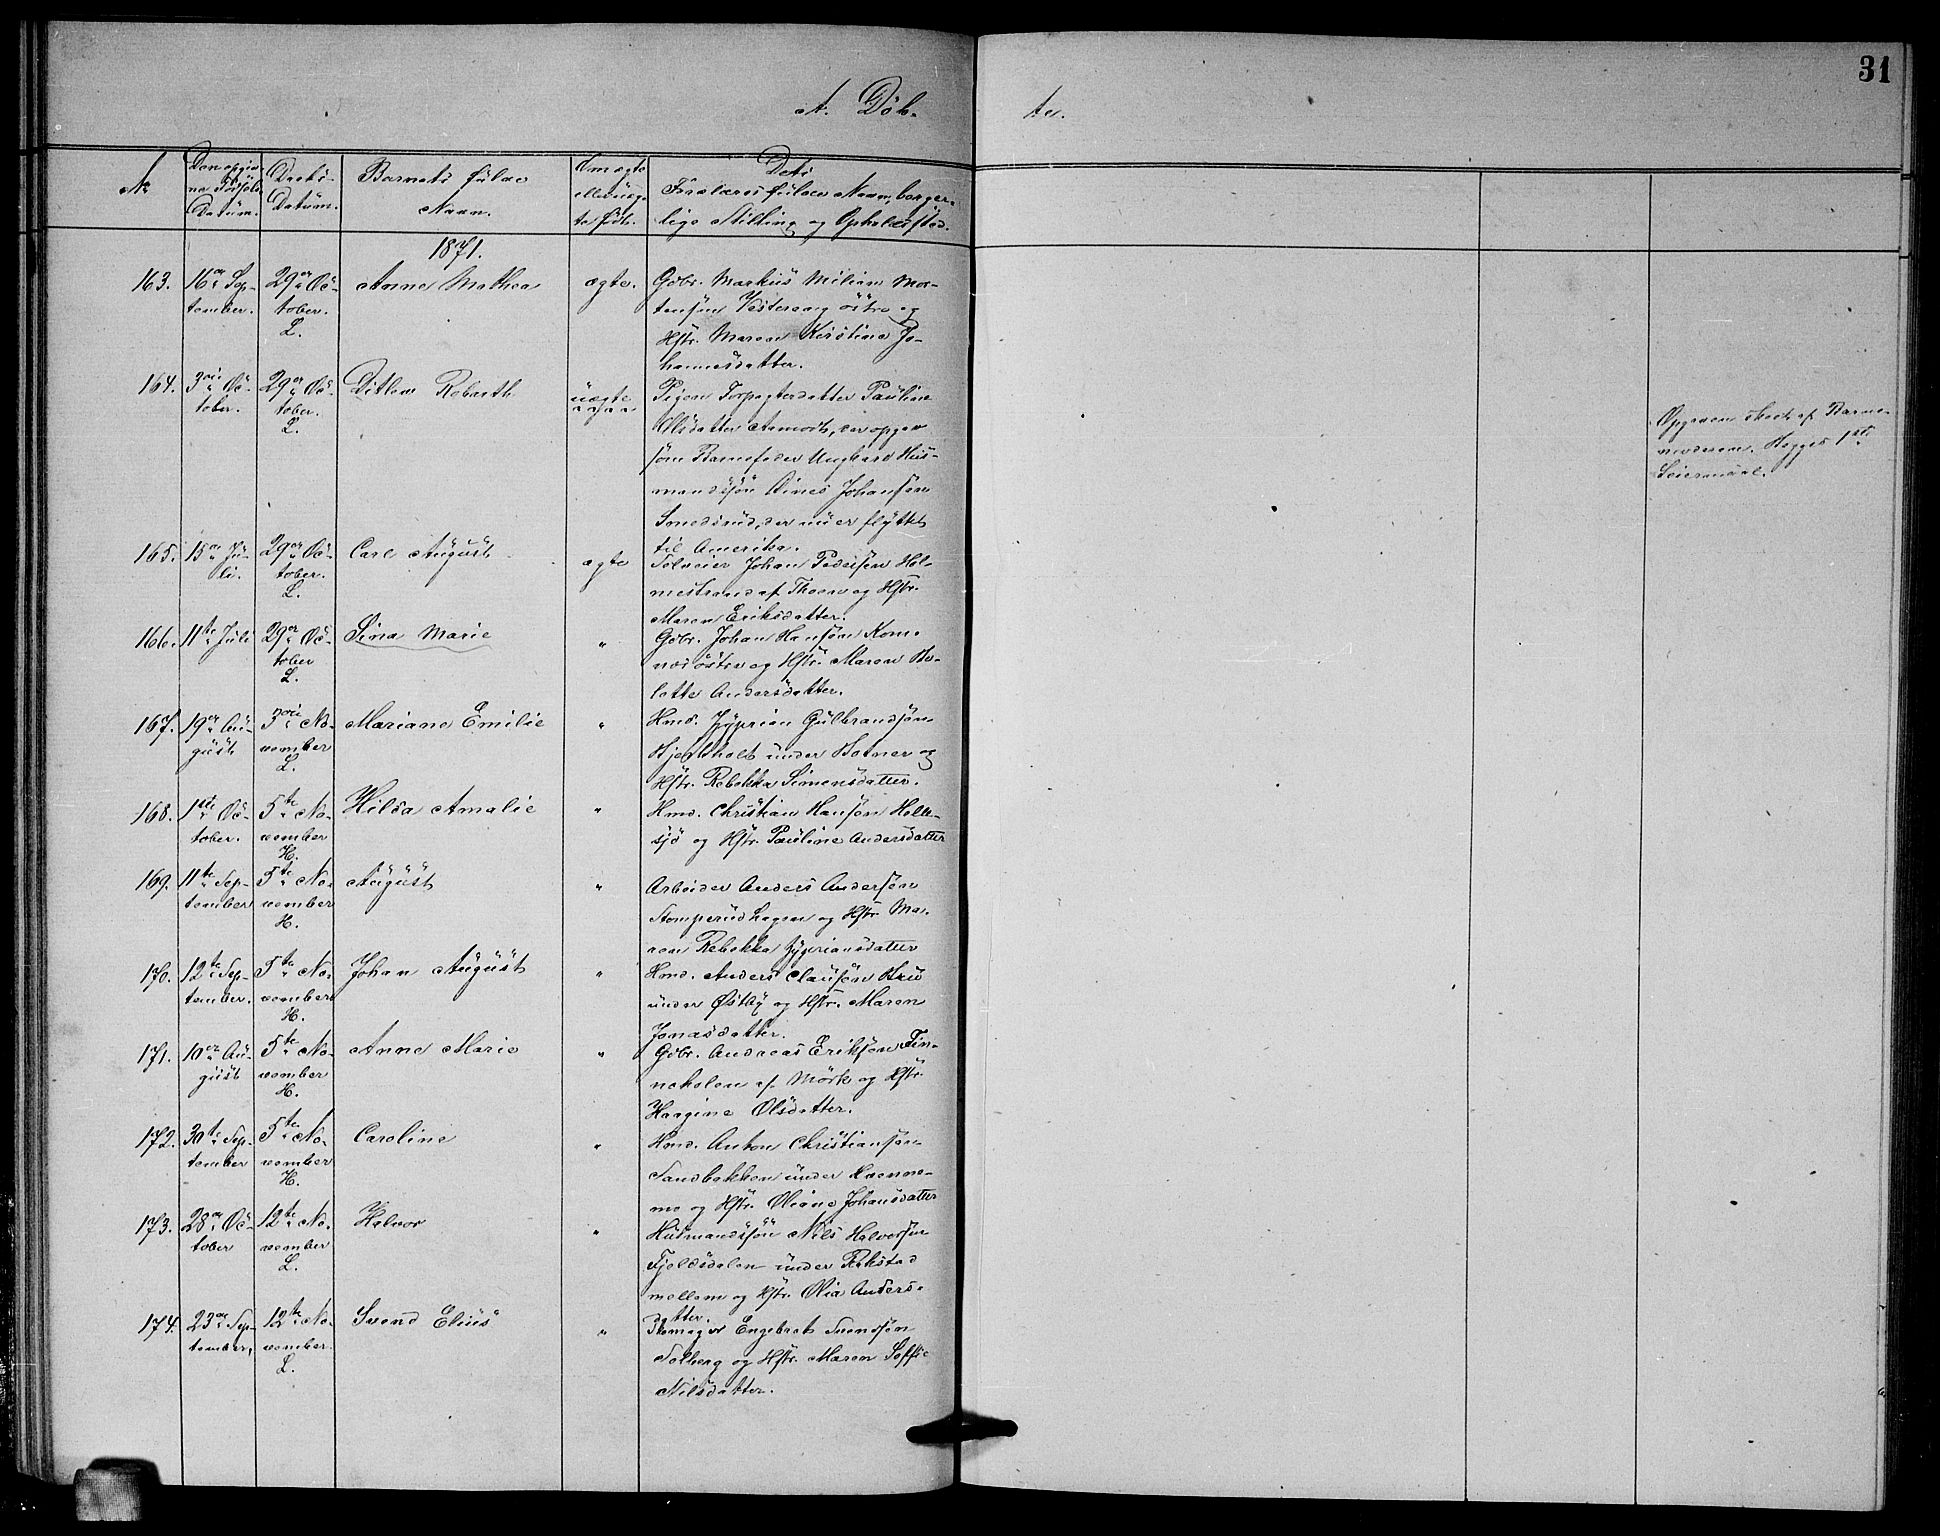 31
A. Døb-
te.
No
Den opgiv-
ne Fødsels
Datüm.
Daabs-
Datüm.
Barnets fülde
Navn.
Om ægte
eller üæg-
te født.
Dets
Forældres fülde Navn, borger-
lige Stilling og Opholdssted.
1871.
163. 16de Sep-
tember.
29de Oc-
tober.
L.
Anne Mathea
ægte.
Gbr. Markus Milian Mor-
tensøn Vesterang østre og
Hstr. Maren Kirstine Jo-
hannesdatter.
164. 3die Oc-
tober.
29de Oc-
tober.
L.
Ditlev Robarth
üægte
Pigen Forpagterdatter Pauline
Olsdatter Aamodt, der opgav
som Barnefader Ungkarl Hus-
mandssøn Dines Johansøn
Smedsrud, der nu er flyttet
til Amerika.
Opgaven skeet af Barne-
moderen. Begges 1ste
Leiermaal.
165. 15de Ju-
li.
29de Oc-
tober.
L.
Carl August
ægte
Selveier Johan Pedersøn Hol-
mestrand af Thoen og Hstr.
Maren Eriksdatter.
166. 11te Juli
29de Oc-
tober
L.
Lina Marie
"
Gbr. Johan Hansøn Kom-
næs østre og Hstr. Maren Be-
lotte Andersdatter.
167. 19de Au-
gust
3die No-
vember
L.
Mariane Emilie
"
Hmd. Zyprian Gulbrandsøn
under Botner og
Hstr. Rebekka Simensdatter.
168. 1ste Oc-
tober.
5te No-
vember
H.
Hilda Amalie
"
Hmd. Christian Hansøn Holte-
sjø og Hstr. Pauline Andersdatter
169. 11te Sep-
tember
5te No-
vember
H.
August
"
Arbeider Anders Andersøn
Stomperudhagen og Hstr. Ma-
ren Rebekka Zypriansdatter
170. 12te Sep-
tember.
5te No-
vember
H.
Johan August
"
Hmd. Anders Clausøn
under Østby og Hstr. Maren
Jonasdatter.
171. 10de Au-
gust
5te No-
vember
H.
Anne Marie
"
Gbr. Andreas Eriksøn Fin-
neholen af Mørk og Hstr.
Haagine Olsdatter.
172. 30te Sep-
tember
5te No-
vember
H.
Caroline
"
Hmd. Anton Christiansøn
Sandbakken under Haenne-
mo og Hstr. Oliane Johansdatter
173. 28de Oc-
tober
12te No-
vember
L.
Halvor
"
Husmandssøn Nils Halvorsøn
Fjeldsdalen under Rakstad
mellem og Hstr. Olia Anders-
datter.
174. 23de Sep-
tember.
12te No-
vember
L.
Svend Elius
"
Skomager Engebret Svendsøn
Solberg og Hstr. Maren Soffie
Nilsdatter.